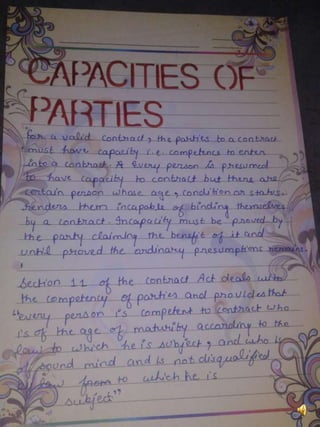 CAPACITIES OF
PARTIES
For a valid contract, the parties to a contract
must have capacity i.e. competence to enter
into a contract. Every person is presumed
to have capacity to contract but there are
certain person whose age, condition or status.
Renders them incapable of binding themselves
by a contract. Incapacity must be proved by
the party claiming the benefit of it and
until proved the ordinary presumptions remains.
Section 11 of the contract Act deals with
the competency of parties and provides that
"every person is competent to contract who
is of the age of maturity according to the
law to which he is subject, and who is
of sound mind and is not disqualified
law from to which he is
subject"